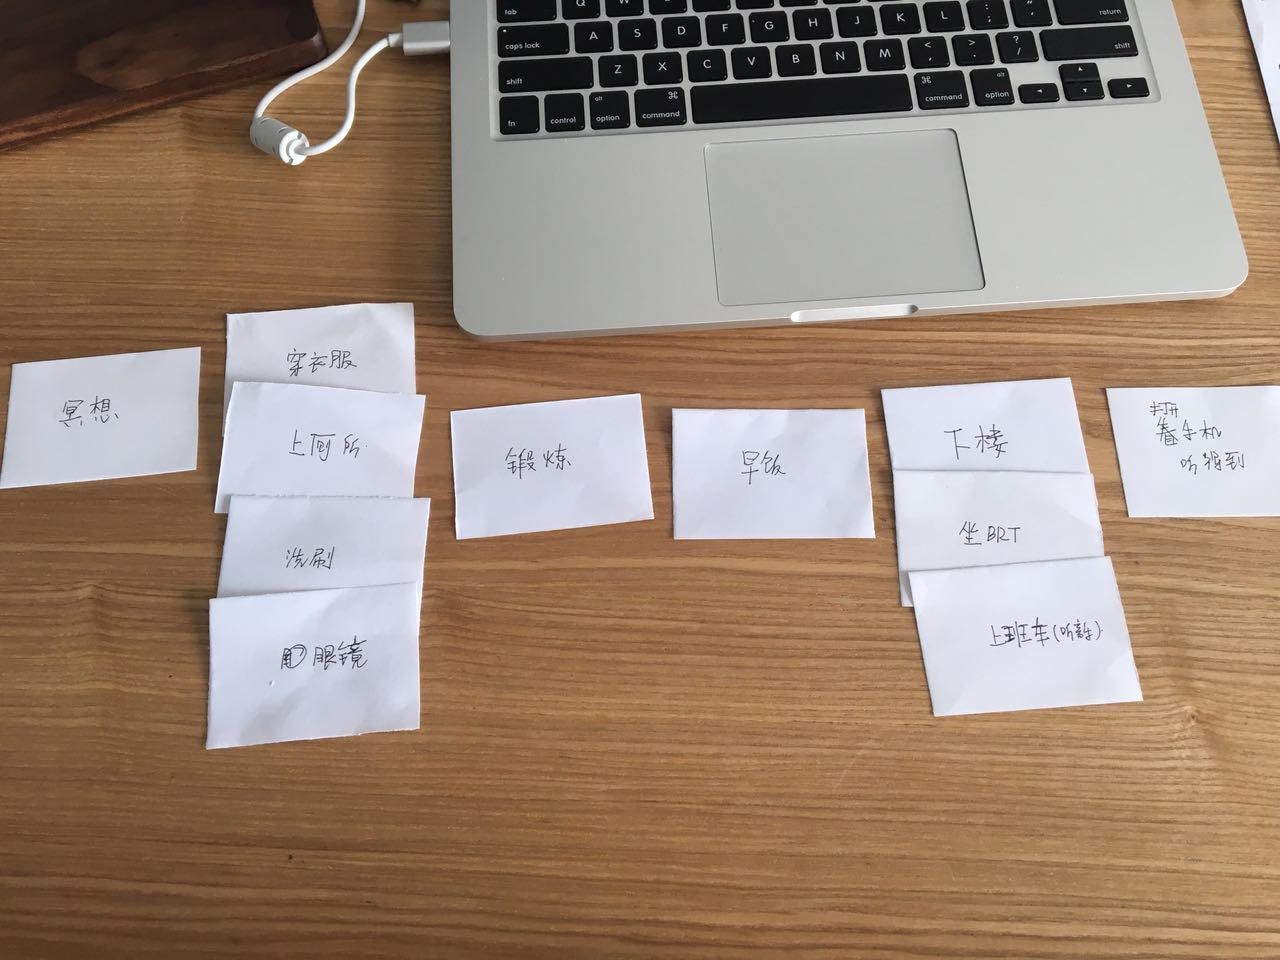 tab
Q
W
caps lock
A
S
D
F
G
H
J
K
L
:
;
return
shift
Z
X
C
V
B
N
M
<
,
>
.
?
/
shift
fn
control
alt
option
⌘
command
⌘
command
alt
option
冥想
穿衣服
上厕所
洗刷
眼镜
锻炼
早饭
下楼
坐BRT
上班车
打开
看手机
听得到